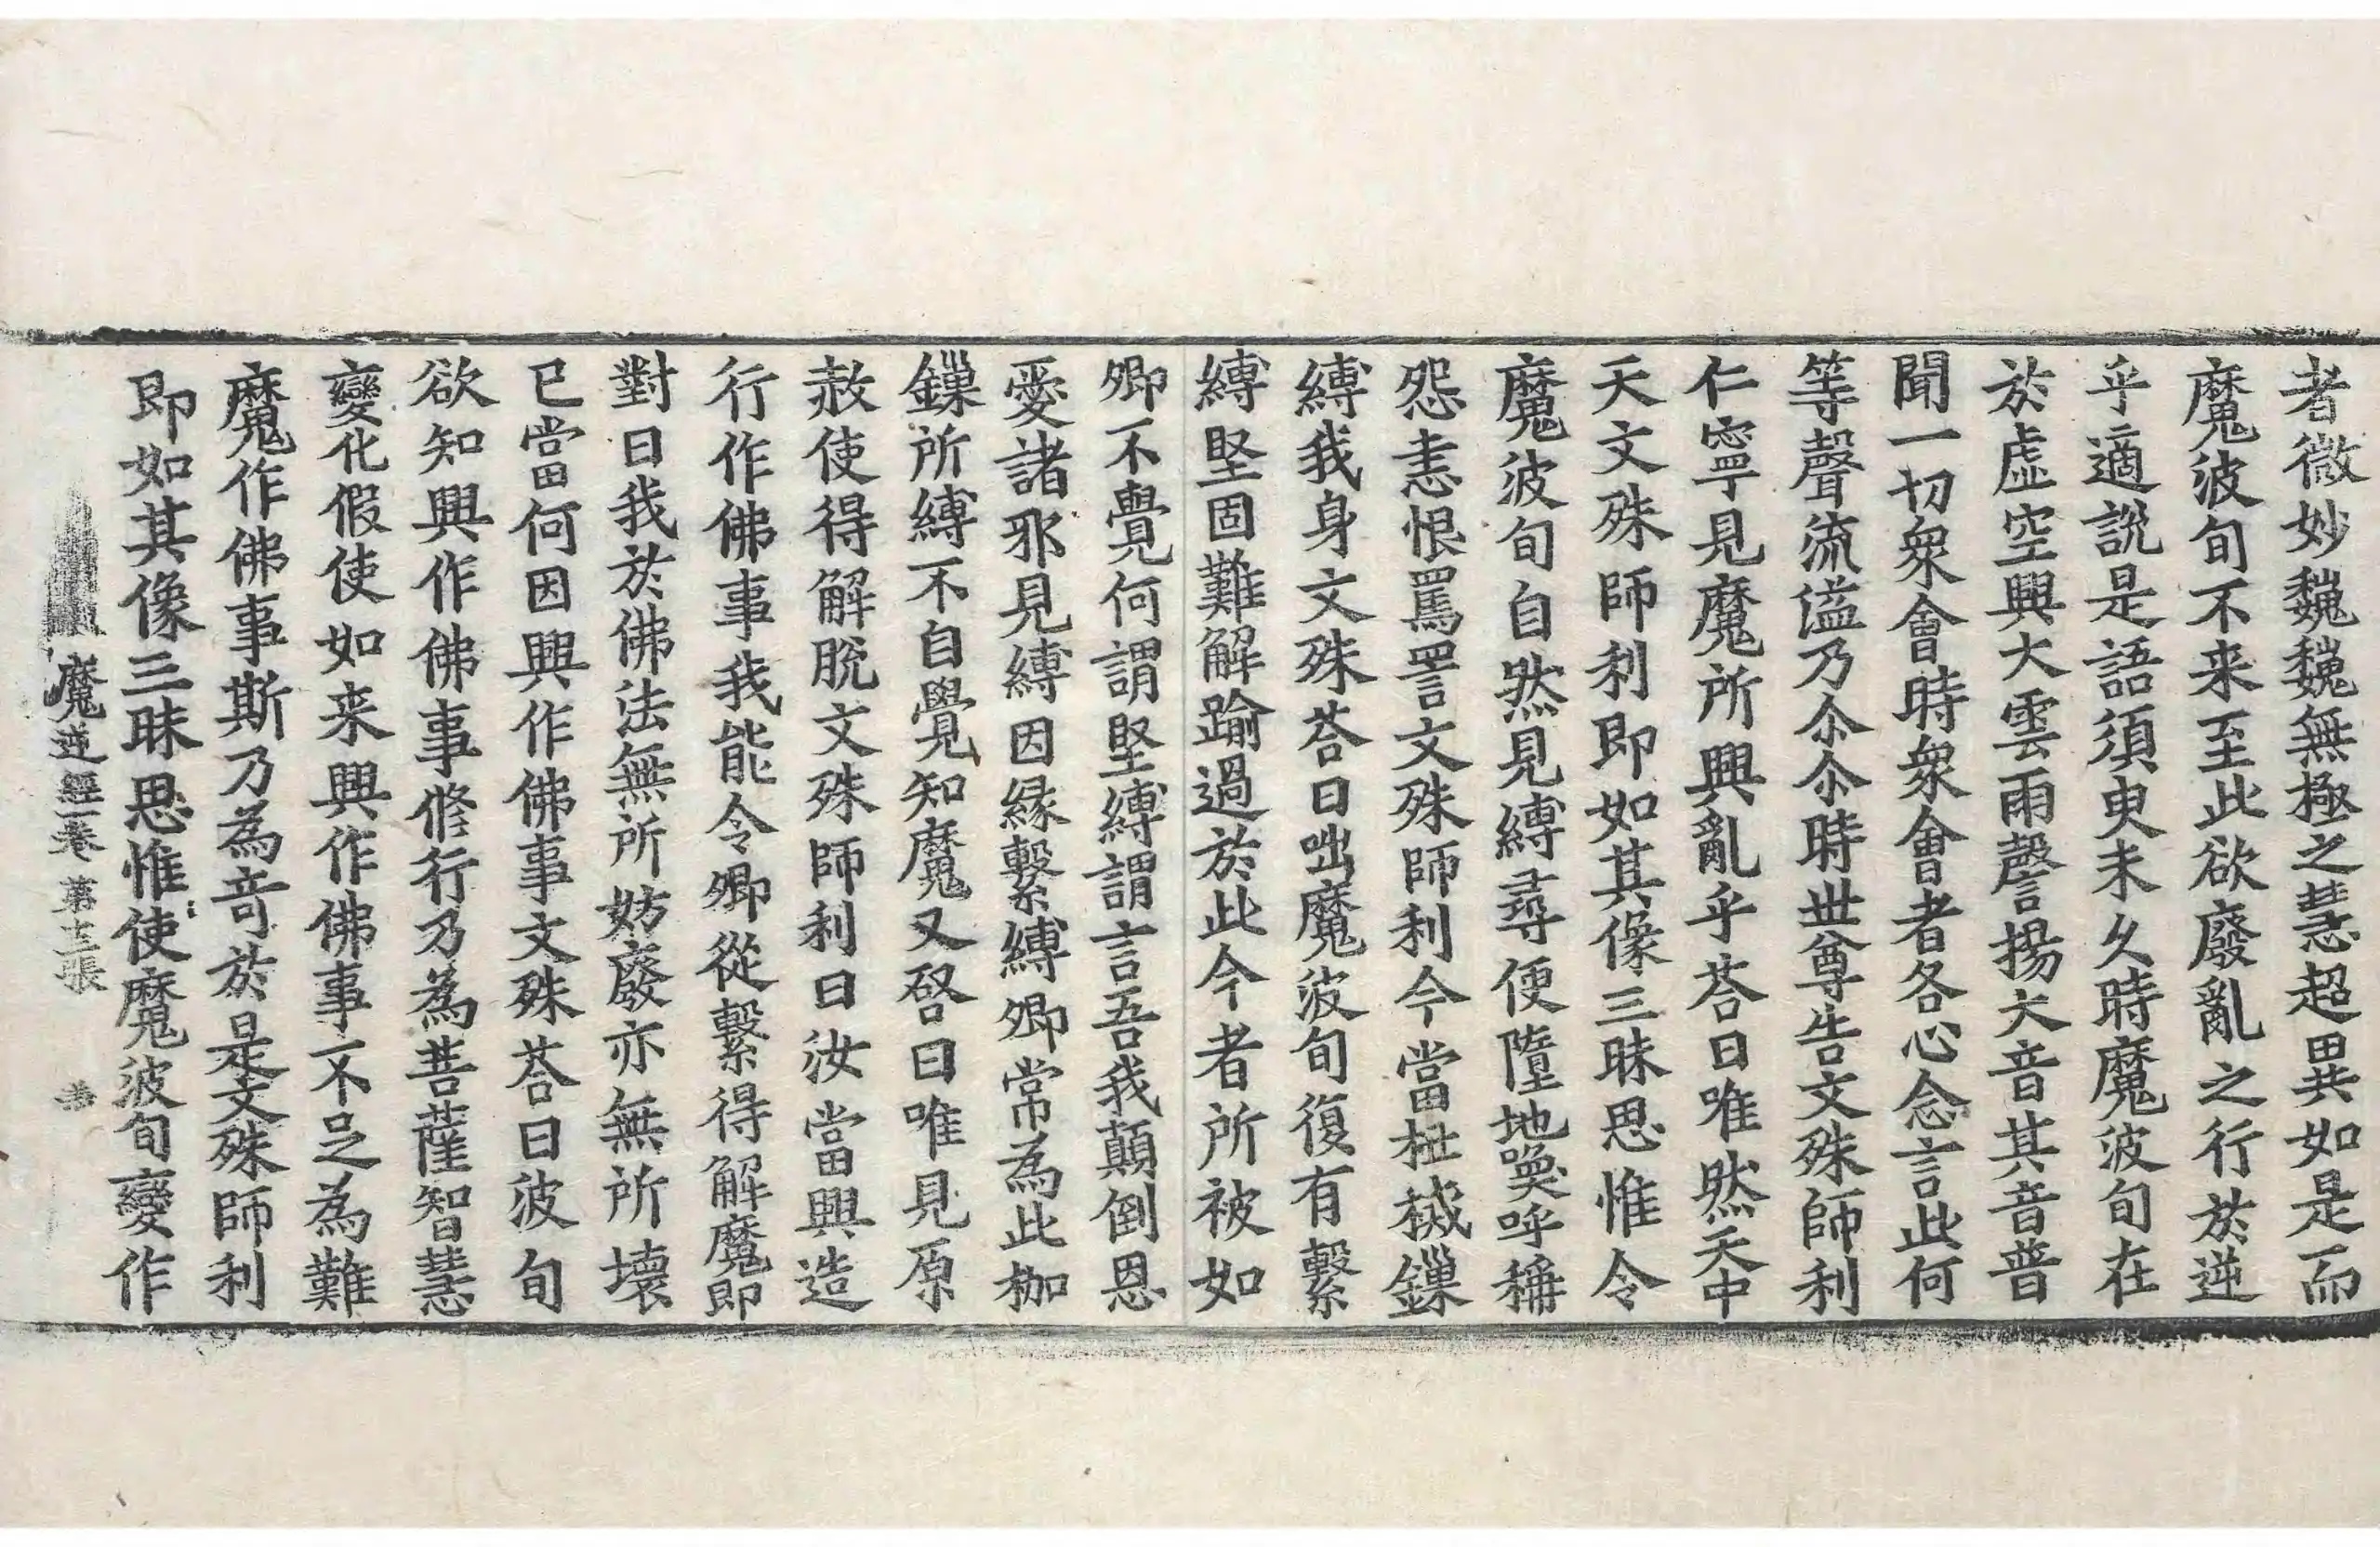 者微妙巍巍無極之慧超異如是而
魔波旬不来至此欲廢亂之行於逆
乎適說是語須臾未久時魔波旬在
於虛空興大雲雨謦揚大音其音普
聞一切衆會時衆會者各心念言此何
等聲流溢乃尒尒時世尊告文殊師利
仁寧見魔所興亂乎荅曰唯然天中
天文殊師利即如其像三昧思惟令
魔波旬自然見縛尋便墮地喚呼稱
怨恚恨罵詈文殊師利今當杻械鏁
縛我身文殊荅曰咄魔波旬復有繫
縛堅固難解踰過於此今者所被如
卿不覺何謂堅縛謂言吾我顛倒恩
愛諸邪見縛因緣繫縛卿常為此枷
鏁所縛不自覺知魔又啓曰唯見原
赦使得解脫文殊師利曰汝當興造
行作佛事我能令卿從繫得解魔即
對曰我於佛法無所妨廢亦無所壞
已當何因興作佛事文殊荅曰波旬
欲知興作佛事修行乃為菩薩智慧
變化假使如来興作佛事不足為難
魔作佛事斯乃為奇於是文殊師利
即如其像三昧思惟使魔波旬變作
魔逆經一卷 第十三張